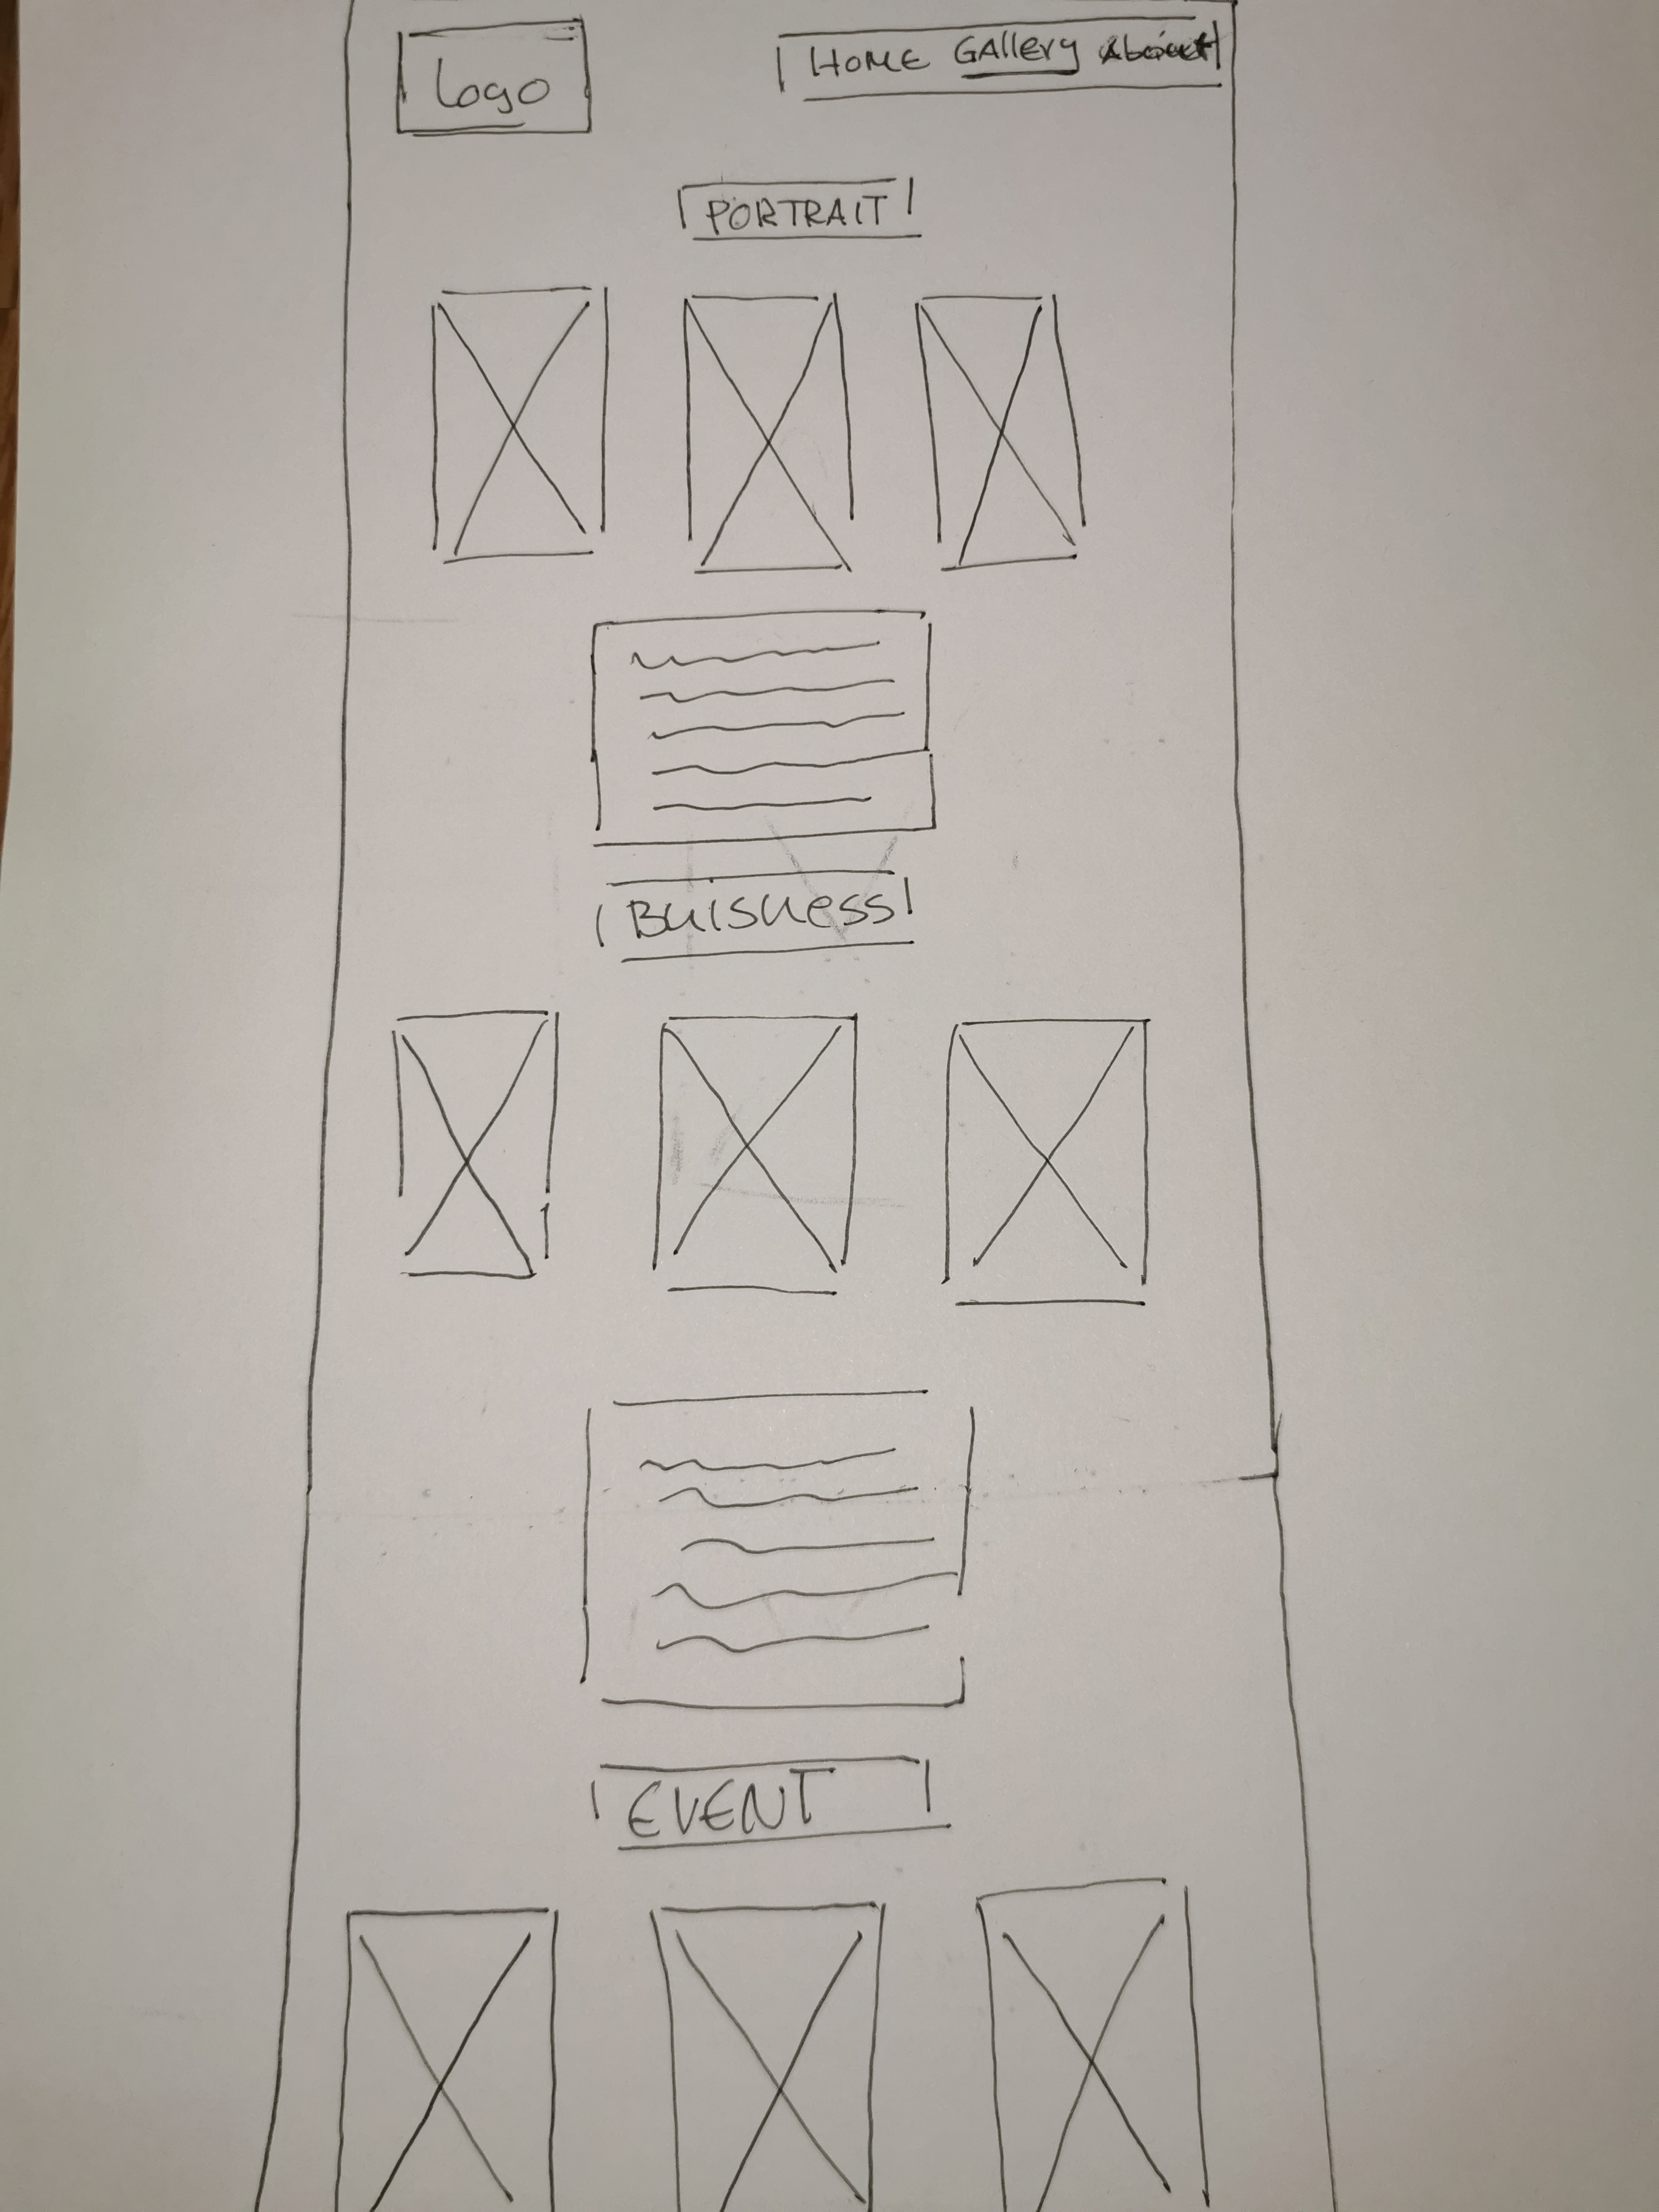 Logo
HOME GAllery About
PORTRAIT
Buisness
EVENT